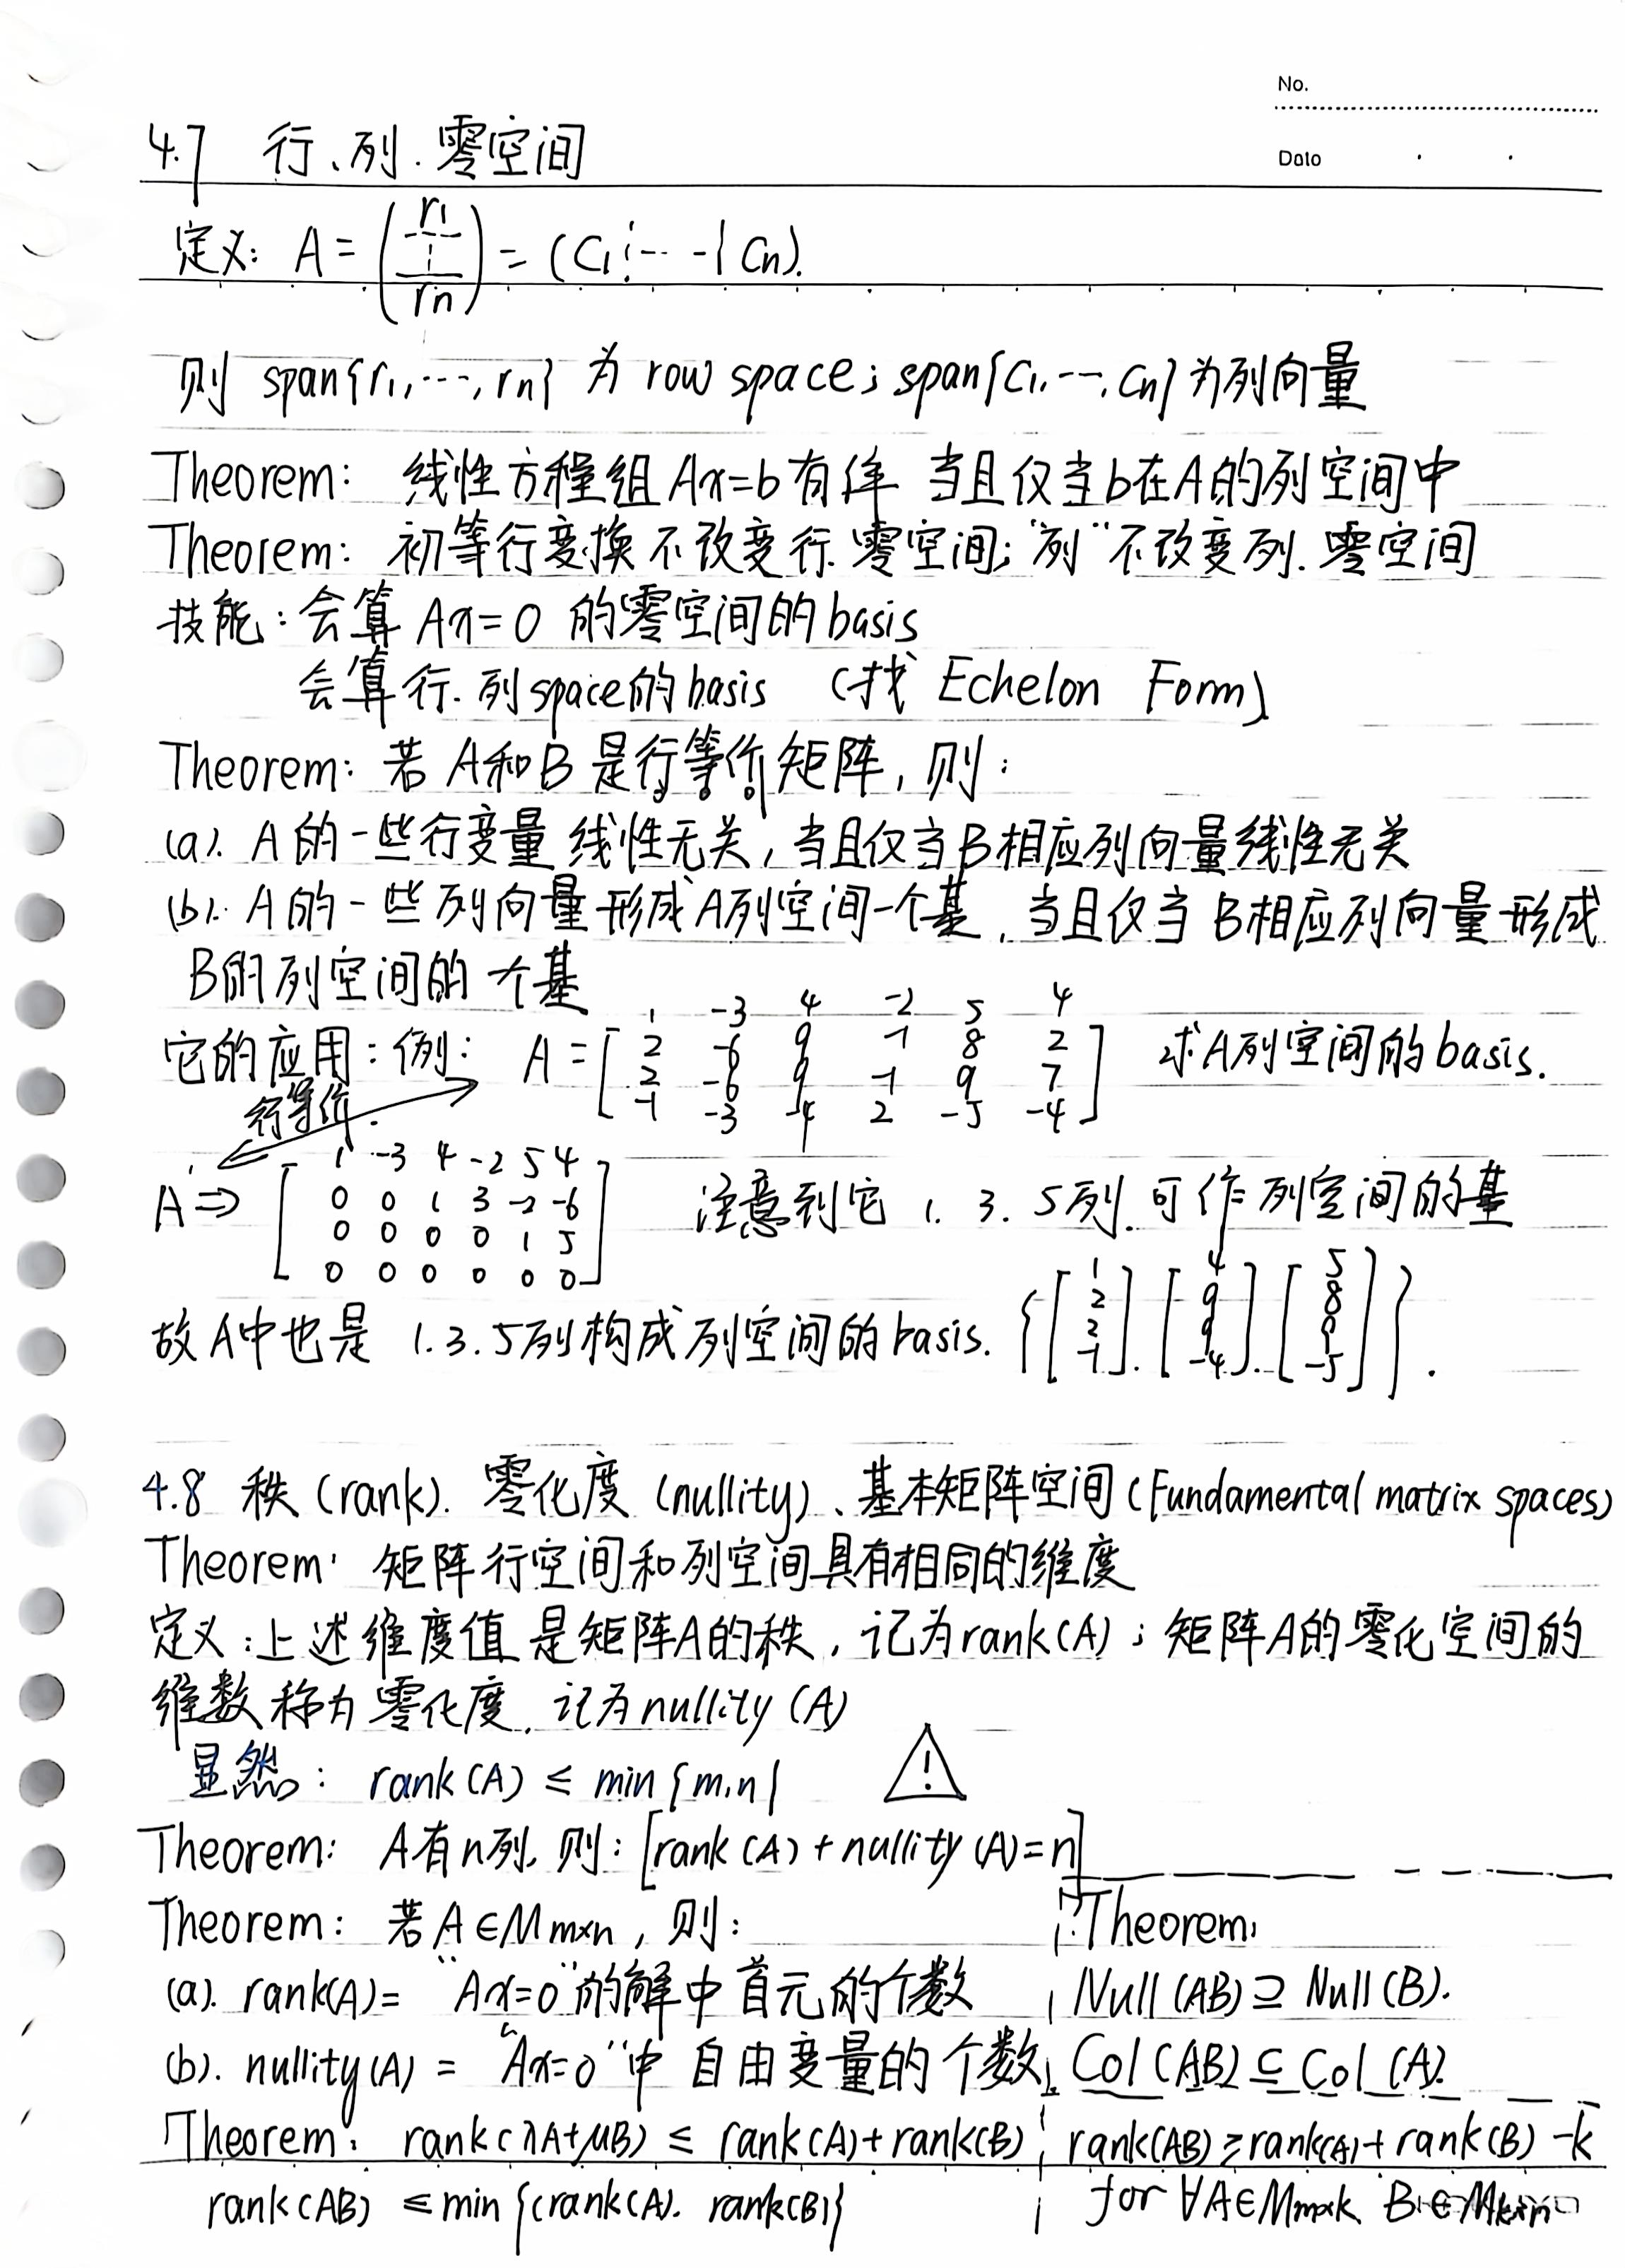 No.
Date
4.7 行、列.零空间
定义: A = (r1 ⋮ rn) = (C1 ¦ ⋯ ¦ Cn).
则 span{r1, ⋯, rn} 为 row space; span{C1, ⋯, Cn} 为列向量
Theorem: 线性方程组Ax=b有解 当且仅当b在A的列空间中
Theorem: 初等行变换不改变行.零空间;"列"不改变列.零空间
技能:会算 Ax=0 的零空间的basis
会算行.列space的basis (找 Echelon Form)
Theorem: 若 A和B 是行等价矩阵,则:
(a). A的一些行变量线性无关,当且仅当B相应列向量线性无关
(b). A的一些列向量形成A列空间一个基,当且仅当 B相应列向量形成
B的列空间的个基
它的应用:例: A = [ 1 -3 4 -2 5 4 求A列空间的basis.
2 -6 9 -1 8 2
2 -6 9 -1 9 7
-1 -3 -4 2 -5 -4 ]
行等价
A ⇒ [ 1 -3 4 -2 5 4 注意到它 1. 3. 5列.可作列空间的基
0 0 1 3 -2 -6
0 0 0 0 1 5
0 0 0 0 0 0 ]
故A中也是 1.3.5列构成列空间的basis. { [1 2 2 -1]. [4 9 9 -4]. [5 8 9 -5] }.
4.8 秩 (rank). 零化度 (nullity)、基本矩阵空间 (Fundamental matrix spaces)
Theorem: 矩阵行空间和列空间具有相同的维度
定义:上述维度值是矩阵A的秩,记为rank(A);矩阵A的零化空间的
维数称为零化度,记为nullity (A)
显然: rank(A) ≤ min{m,n} !
Theorem: A有n列,则: [rank (A) + nullity (A)=n]
Theorem: 若A∈Mm×n,则:
(a). rank(A)= "Ax=0"的解中首元的个数
(b). nullity(A) = "Ax=0"中 自由变量的个数
Theorem: rank(λA+μB) ≤ rank(A)+rank(B)
rank(AB) ≤ min{(rank(A). rank(B)}
Theorem:
Null (AB) ⊇ Null (B).
Col (AB) ⊆ Col (A).
rank(AB) ≥ rank(A)+ rank(B) -k
for ∀A∈Mm×k B∈Mk×n